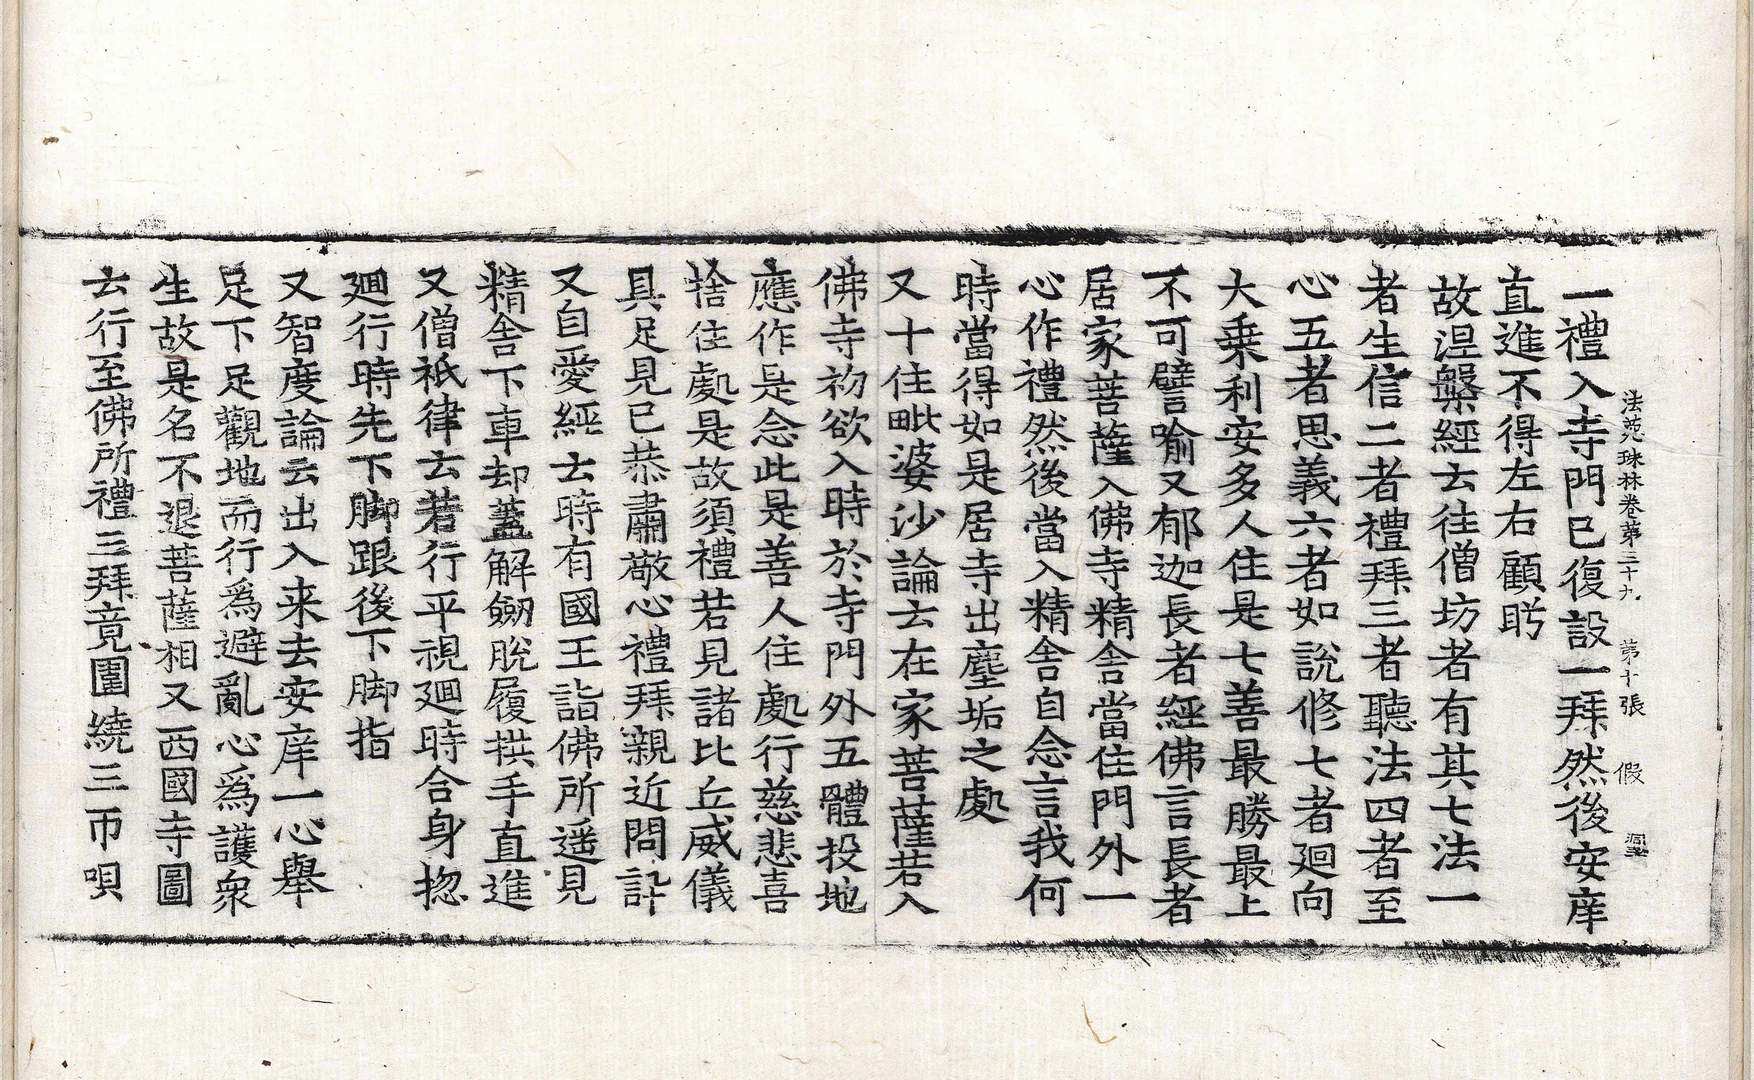 法苑珠林卷第三十九　第十張　假
一禮入寺門已復設一拜然後安庠
直進不得左右顧眄
故涅槃經云往僧坊者有其七法一
者生信二者禮拜三者聽法四者至
心五者思義六者如說修七者廻向
大乗利安多人住是七善最勝最上
不可譬喻又郁迦長者經佛言長者
居家菩薩入佛寺精舍當住門外一
心作禮然後當入精舍自念言我何
時當得如是居寺出塵垢之處
又十住毗婆沙論云在家菩薩若入
佛寺初欲入時於寺門外五體投地
應作是念此是善人住處行慈悲喜
捨住處是故須禮若見諸比丘威儀
具足見已恭肅敬心禮拜親近問訊
又自愛經云時有國王詣佛所遥見
精舍下車却蓋解劒脫履拱手直進
又僧祇律云若行平視廻時合身揔
廻行時先下脚跟後下脚指
又智度論云出入来去安庠一心舉
足下足觀地而行爲避亂心爲護衆
生故是名不退菩薩相又西國寺圖
云行至佛所禮三拜竟圍繞三帀唄